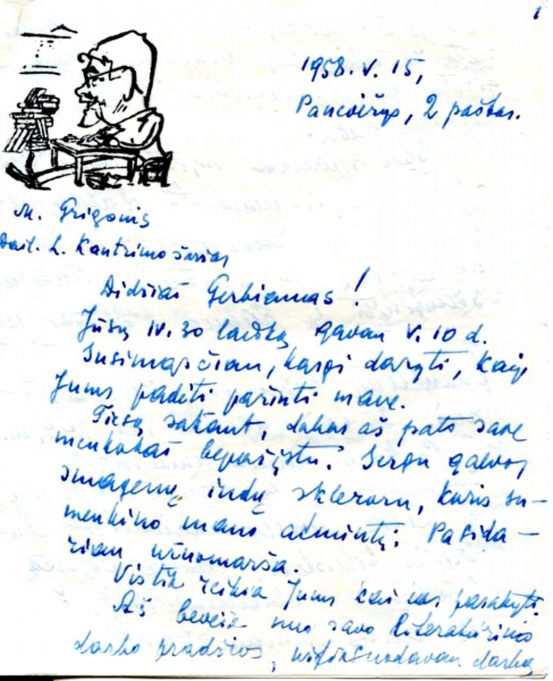 1
1958. V. 15,
Panevėžys, 2 paštas.
M. Grigonis
Dail. L. Kantrimo šaržas
Didžiai Gerbiamas!
Jūsų IV.30 laišką gavau V. 10 d.
Susimąsčiau, kaipgi daryti, kaip
Jums padėti pažinti mane.
Tiesą sakant, dabar aš pats save
menkokai bepažįstu. Sergu galvos
smagenų indų skleroze, kuris su-
menkino mano atmintį: Pasida-
riau užuomarša.
Vis tik reikia Jums kai kas pasakyti.
Aš beveik nuo savo literatūrinio
darbo pradžios, užfiksuodavau darbą,